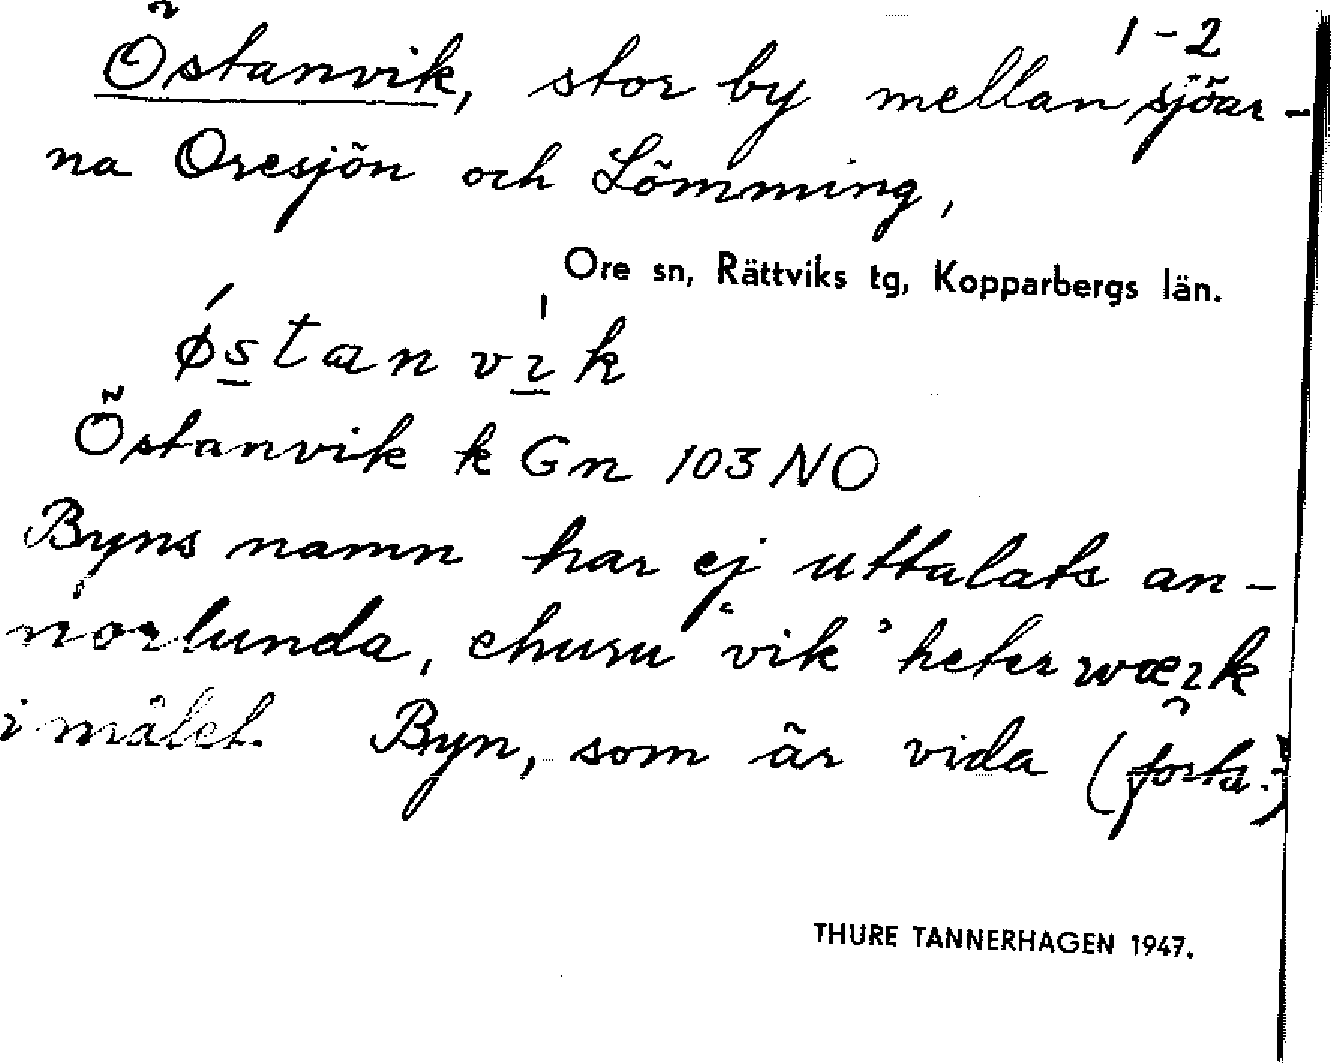 1-2
Östanvik, stor by mellan sjöar-
na Oresjön och Lömming,
Ore sn, Rättviks tg, Kopparbergs län.
ǿstan vík
Östanvik k Gn 103 NO
Byns namn har ej uttalats an-
norlunda, ehuru "vik" heter
i målet. Byn, som är vida (forts.)
THURE TANNERHAGEN 1947.